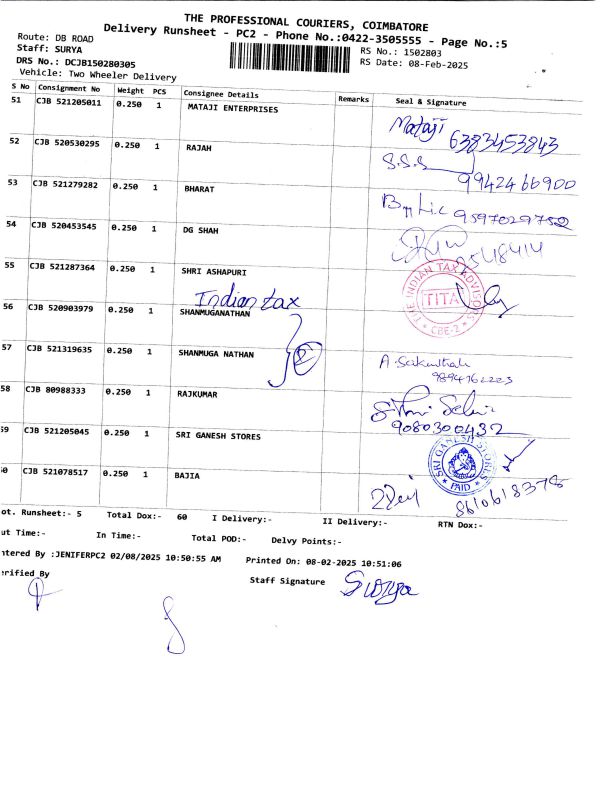 THE PROFESSIONAL COURIERS, COIMBATORE
Delivery Runsheet - PC2 - Phone No.:0422-3505555 - Page No.:5
Route: DB ROAD
Staff: SURYA
RS No.: 1502803
DRS No.: DCJB150280305
RS Date: 08-Feb-2025
Vehicle: Two Wheeler Delivery
S No Consignment No Weight PCS Consignee Details Remarks Seal & Signature
51 CJB 521205011 0.250 1 MATAJI ENTERPRISES Mataji 6383453843
52 CJB 520530295 0.250 1 RAJAH S.S.S 9942466900
53 CJB 521279282 0.250 1 BHARAT 9597029752
54 CJB 520453545 0.250 1 DG SHAH
55 CJB 521287364 0.250 1 SHRI ASHAPURI
THE INDIAN TAX ADVISORS
TITA
CBE-2
Indian tax
56 CJB 520903979 0.250 1 SHANMUGANATHAN
57 CJB 521319635 0.250 1 SHANMUGA NATHAN
2
58 CJB 80988333 0.250 1 RAJKUMAR
9080300432
59 CJB 521205045 0.250 1 SRI GANESH STORES
SRI GANESH STORES
PAID
60 CJB 521078517 0.250 1 BAJIA 8610618378
ot. Runsheet:- 5 Total Dox:- 60 I Delivery:- II Delivery:- RTN Dox:-
ut Time:- In Time:- Total POD:- Delvy Points:-
ntered By :JENIFERPC2 02/08/2025 10:50:55 AM Printed On: 08-02-2025 10:51:06
erified By Staff Signature Surya